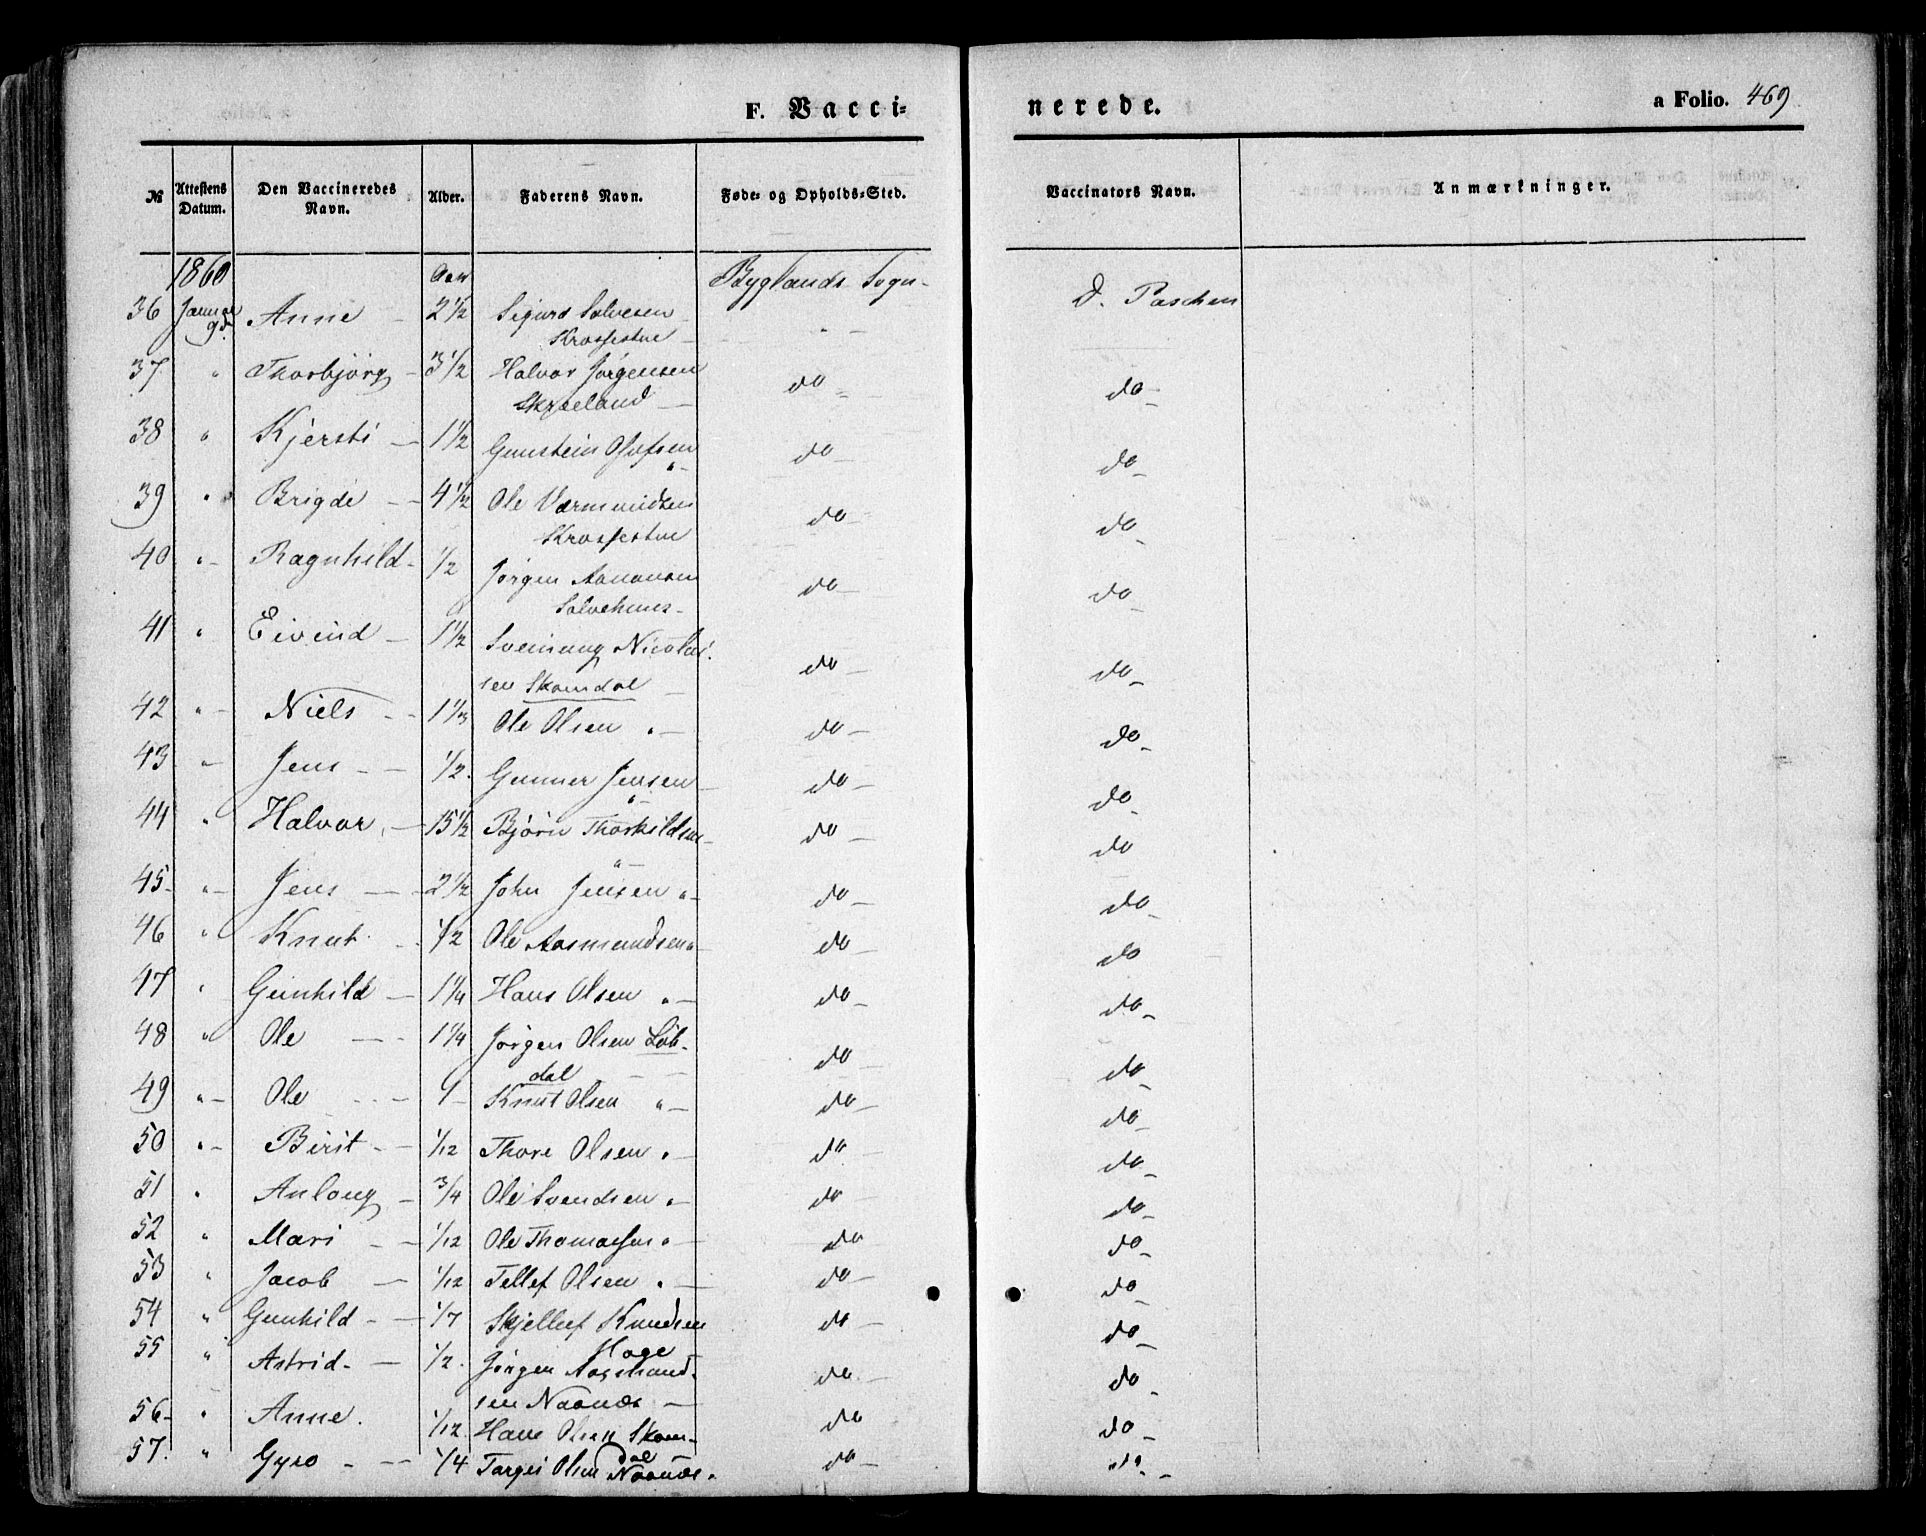 F. Vacci-
nerede.
a Folio. 469
№ Attestens Datum. Den Vaccineredes Navn. Alder. Faderens Navn. Føde- og Opholds-Sted. Vaccinators Navn. Anmærkninger.
1860 Aar Byglands Sogn-
36 Januar 9d. Anne - 2 1/2 Sigurd Salvesen D. Paschen
Krossestue -
37 " Thorbjörg - 3 1/2 Halvor Jörgensen do - do -
Skræland -
38 " Kjersti - 1 1/2 Gunstein Olufsen do - do -
"-
39 " Brigde - - 4 1/2 Ole Værmundsen do - do -
Krossestue
40 "- Ragnhild - 1/2 Jörgen do - do -
-
41 " Eivind - 1 1/2 Sveinung Nicolai- do - do -
sen Skomdal -
42 "- Niels - - 1 1/3 Ole Olsen "- do - do -
43 "- Jens - - 1/2. Gunner Jensen do - do -
"-
44 " Halvor, - 15 1/2 Björn Thorkildsen - do - do
"-
45- "- Jens - - 2 1/2 John Jensen "- do - do -
46 " Knut - - 1/2 Ole Aasmundsen "- do - do
47 " Gunhild - 1 1/4 Hans Olsen "- do - do -
48 " Ole - - 1 1/4 Jörgen Olsen Löb- do - do -
dal
49 "- Ole - - 1 - Knut Olsen "- do - do -
50 "- Birit - - 1/12 Thore Olsen "- do - do -
51 " Anloug - 3/4 Ole Svendsen "- do - do -
52 " Mari - - 1/12 Ole Thomassen "- do do -
53 " Jacob - 1/12 Tellef Olsen "- do - do -
54 " Gunhild - - 1/7 Skjellef Knudsen do - do -
Hage
55 " Astrid - - 1/2. Jörgen Aasmund- do - do -
sen Naanæs -
56- " Anne. 1/12 Hans Olsen Skom- do do -
dal
57. " Gyro - -- 1/4 Targei Olsen Naanæs. do - do -